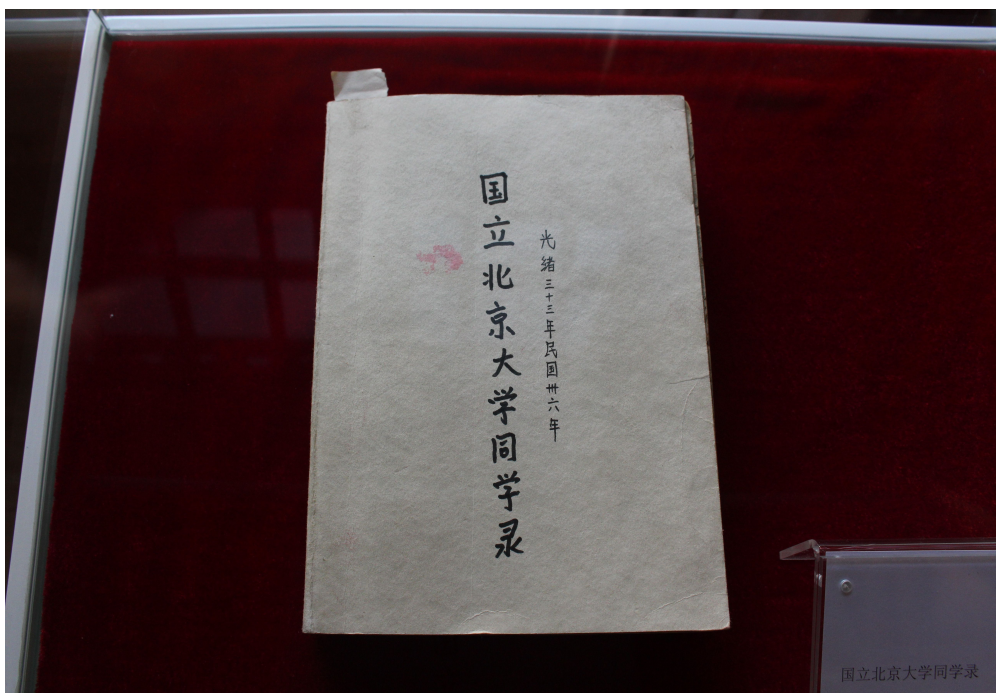 光緒三十三年民国卅六年
国立北京大学同学录
国立北京大学同学录